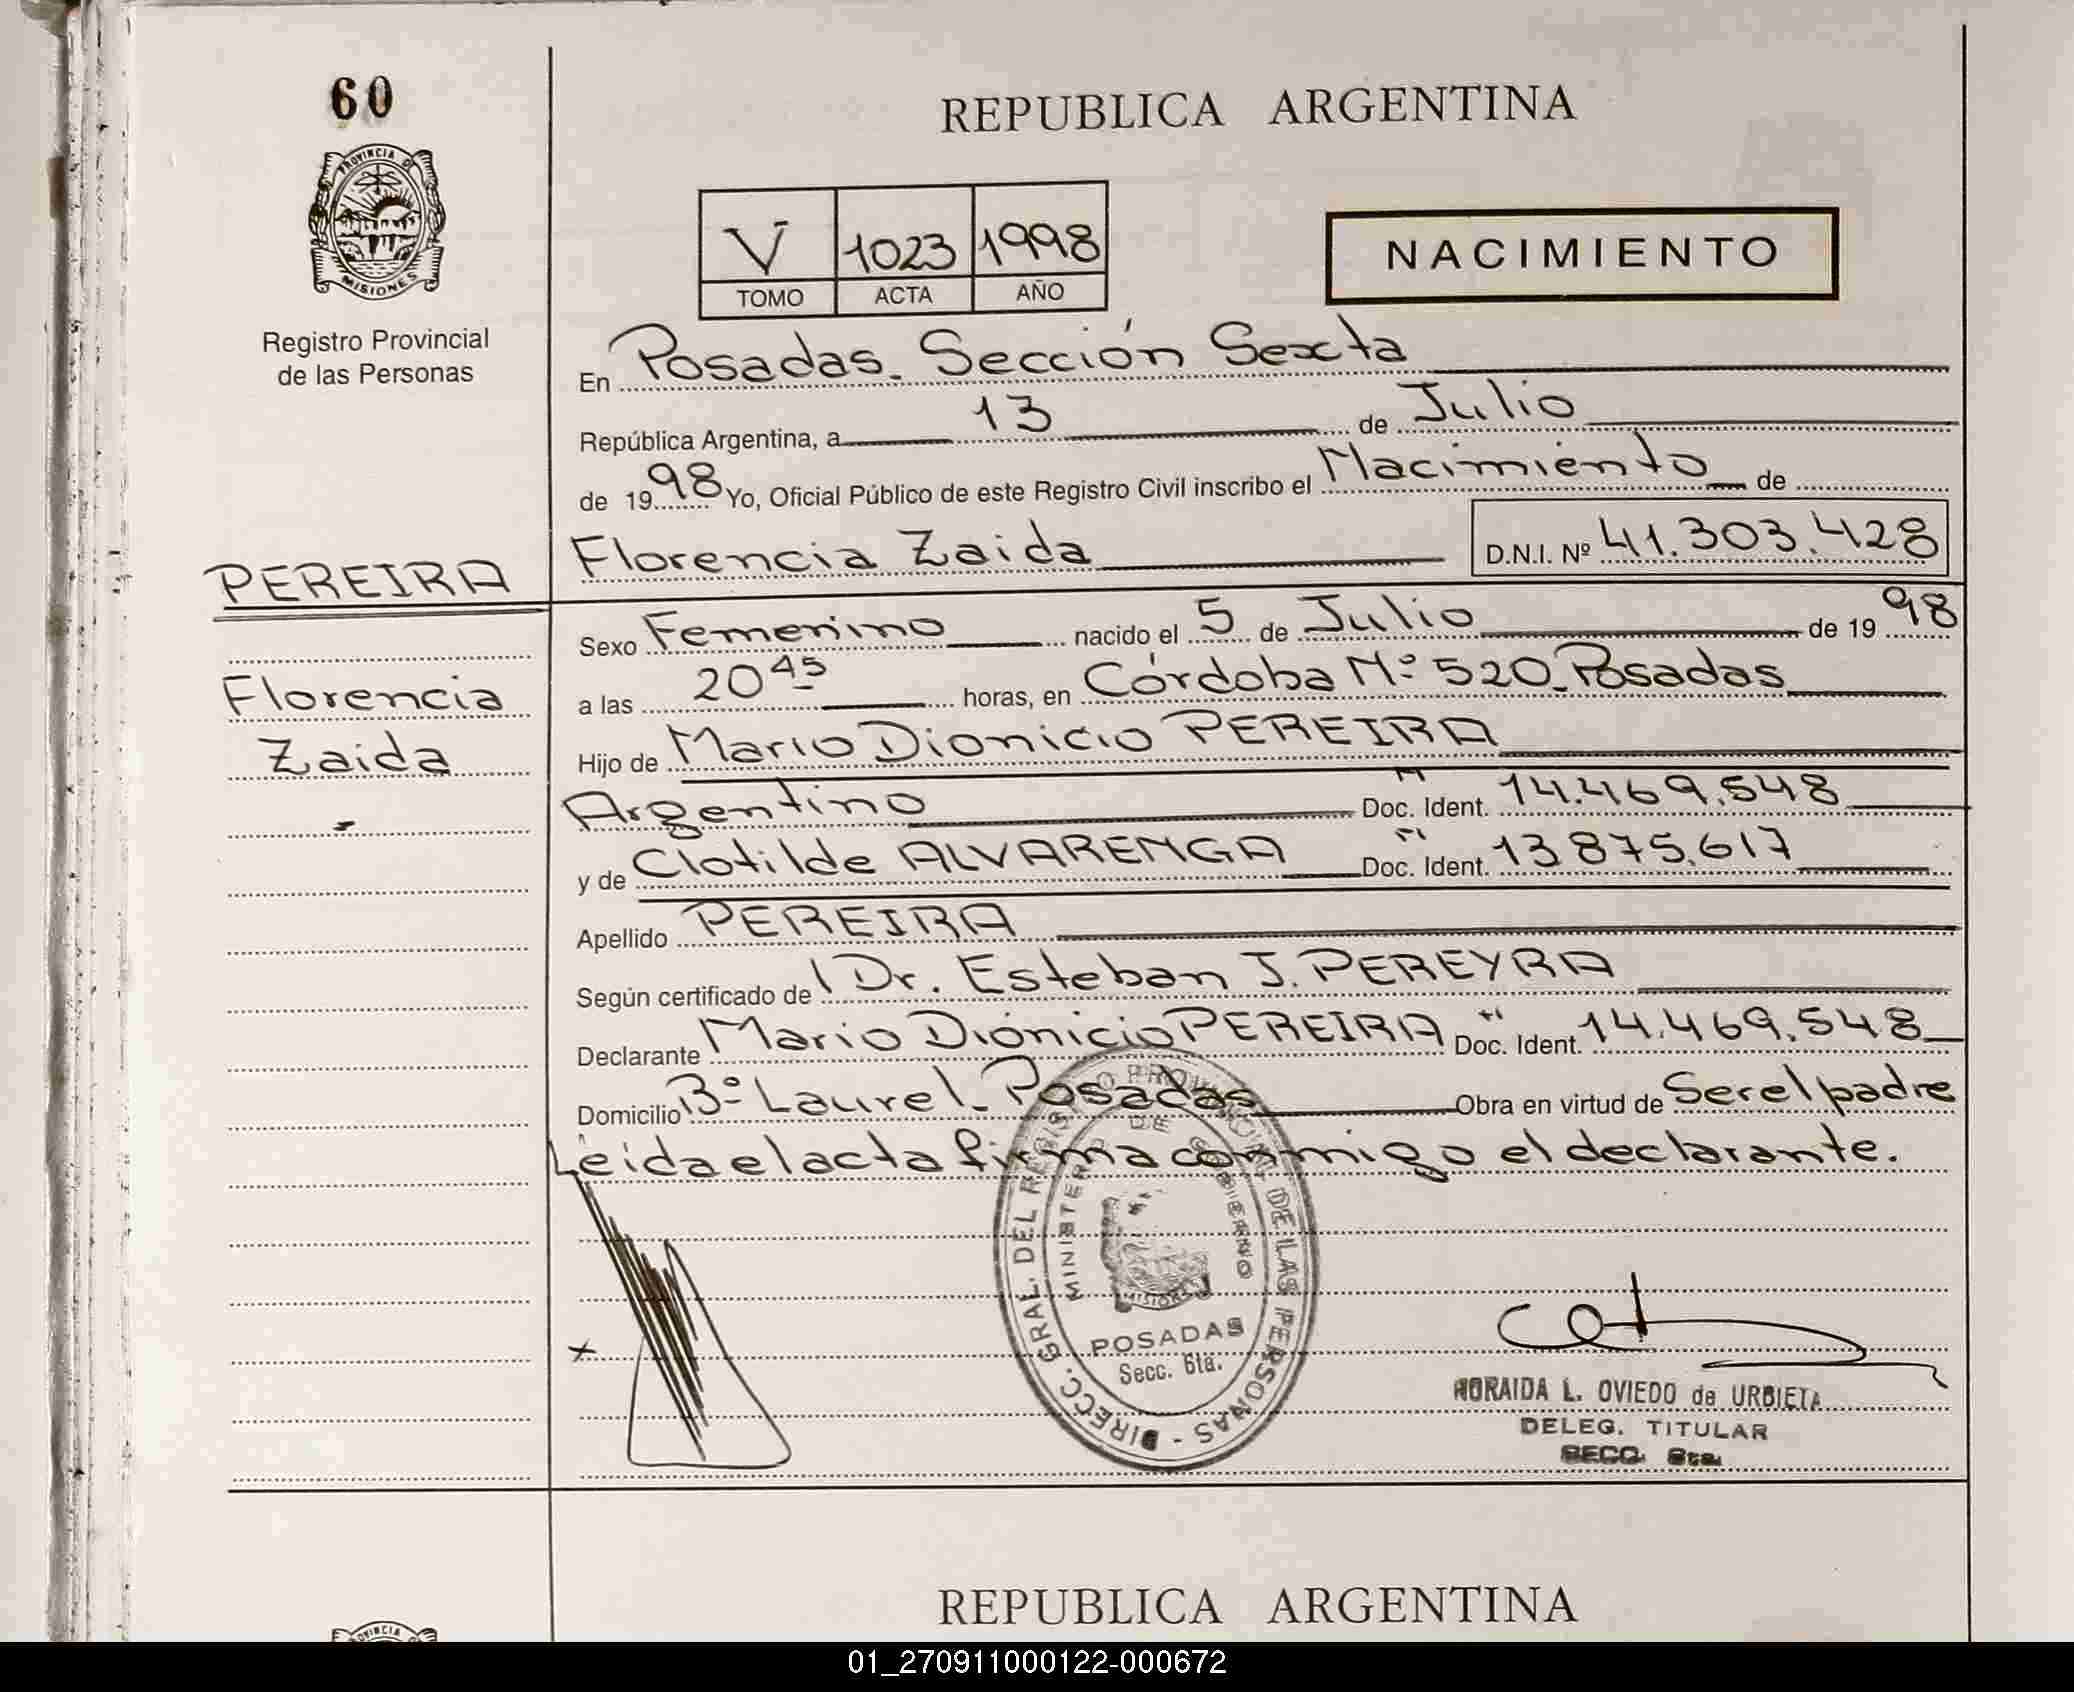 60
REPUBLICA ARGENTINA
PROVINCIA D
MISIONES
V 1023 1998
TOMO ACTA AÑO
NACIMIENTO
Registro Provincial
de las Personas
En Posadas. Sección Sexta
República Argentina, a 13 de Julio
de 1998 Yo, Oficial Público de este Registro Civil inscribo el Nacimiento de
PEREIRA Florencia Zaida D.N.I. Nº 41.303.428
Sexo Femenino nacido el 5 de Julio de 1998
Florencia a las 20 45 horas, en Córdoba Nº 520. Posadas
Zaida Hijo de Mario Dionicio PEREIRA
Argentino Doc. Ident. 14.469.548
y de Clotilde ALVARENGA Doc. Ident. 13875.617
Apellido PEREIRA
Según certificado de Dr. Esteban J. PEREYRA
Declarante Mario Diónicio PEREIRA Doc. Ident. 14.469.548
Domicilio Bº Laurel. Posadas Obra en virtud de Ser el padre
Leida el acta firma conmigo el declarante.
DIRECC. GRAL. DEL REGISTRO PROVINCIAL DE LAS PERSONAS -
MINISTERIO DE GOBIERNO
MISIONES
POSADAS
Secc. 6ta.
NORAIDA L. OVIEDO de URBIETA
DELEG. TITULAR
SECC. 6ta.
REPUBLICA ARGENTINA
01_270911000122-000672